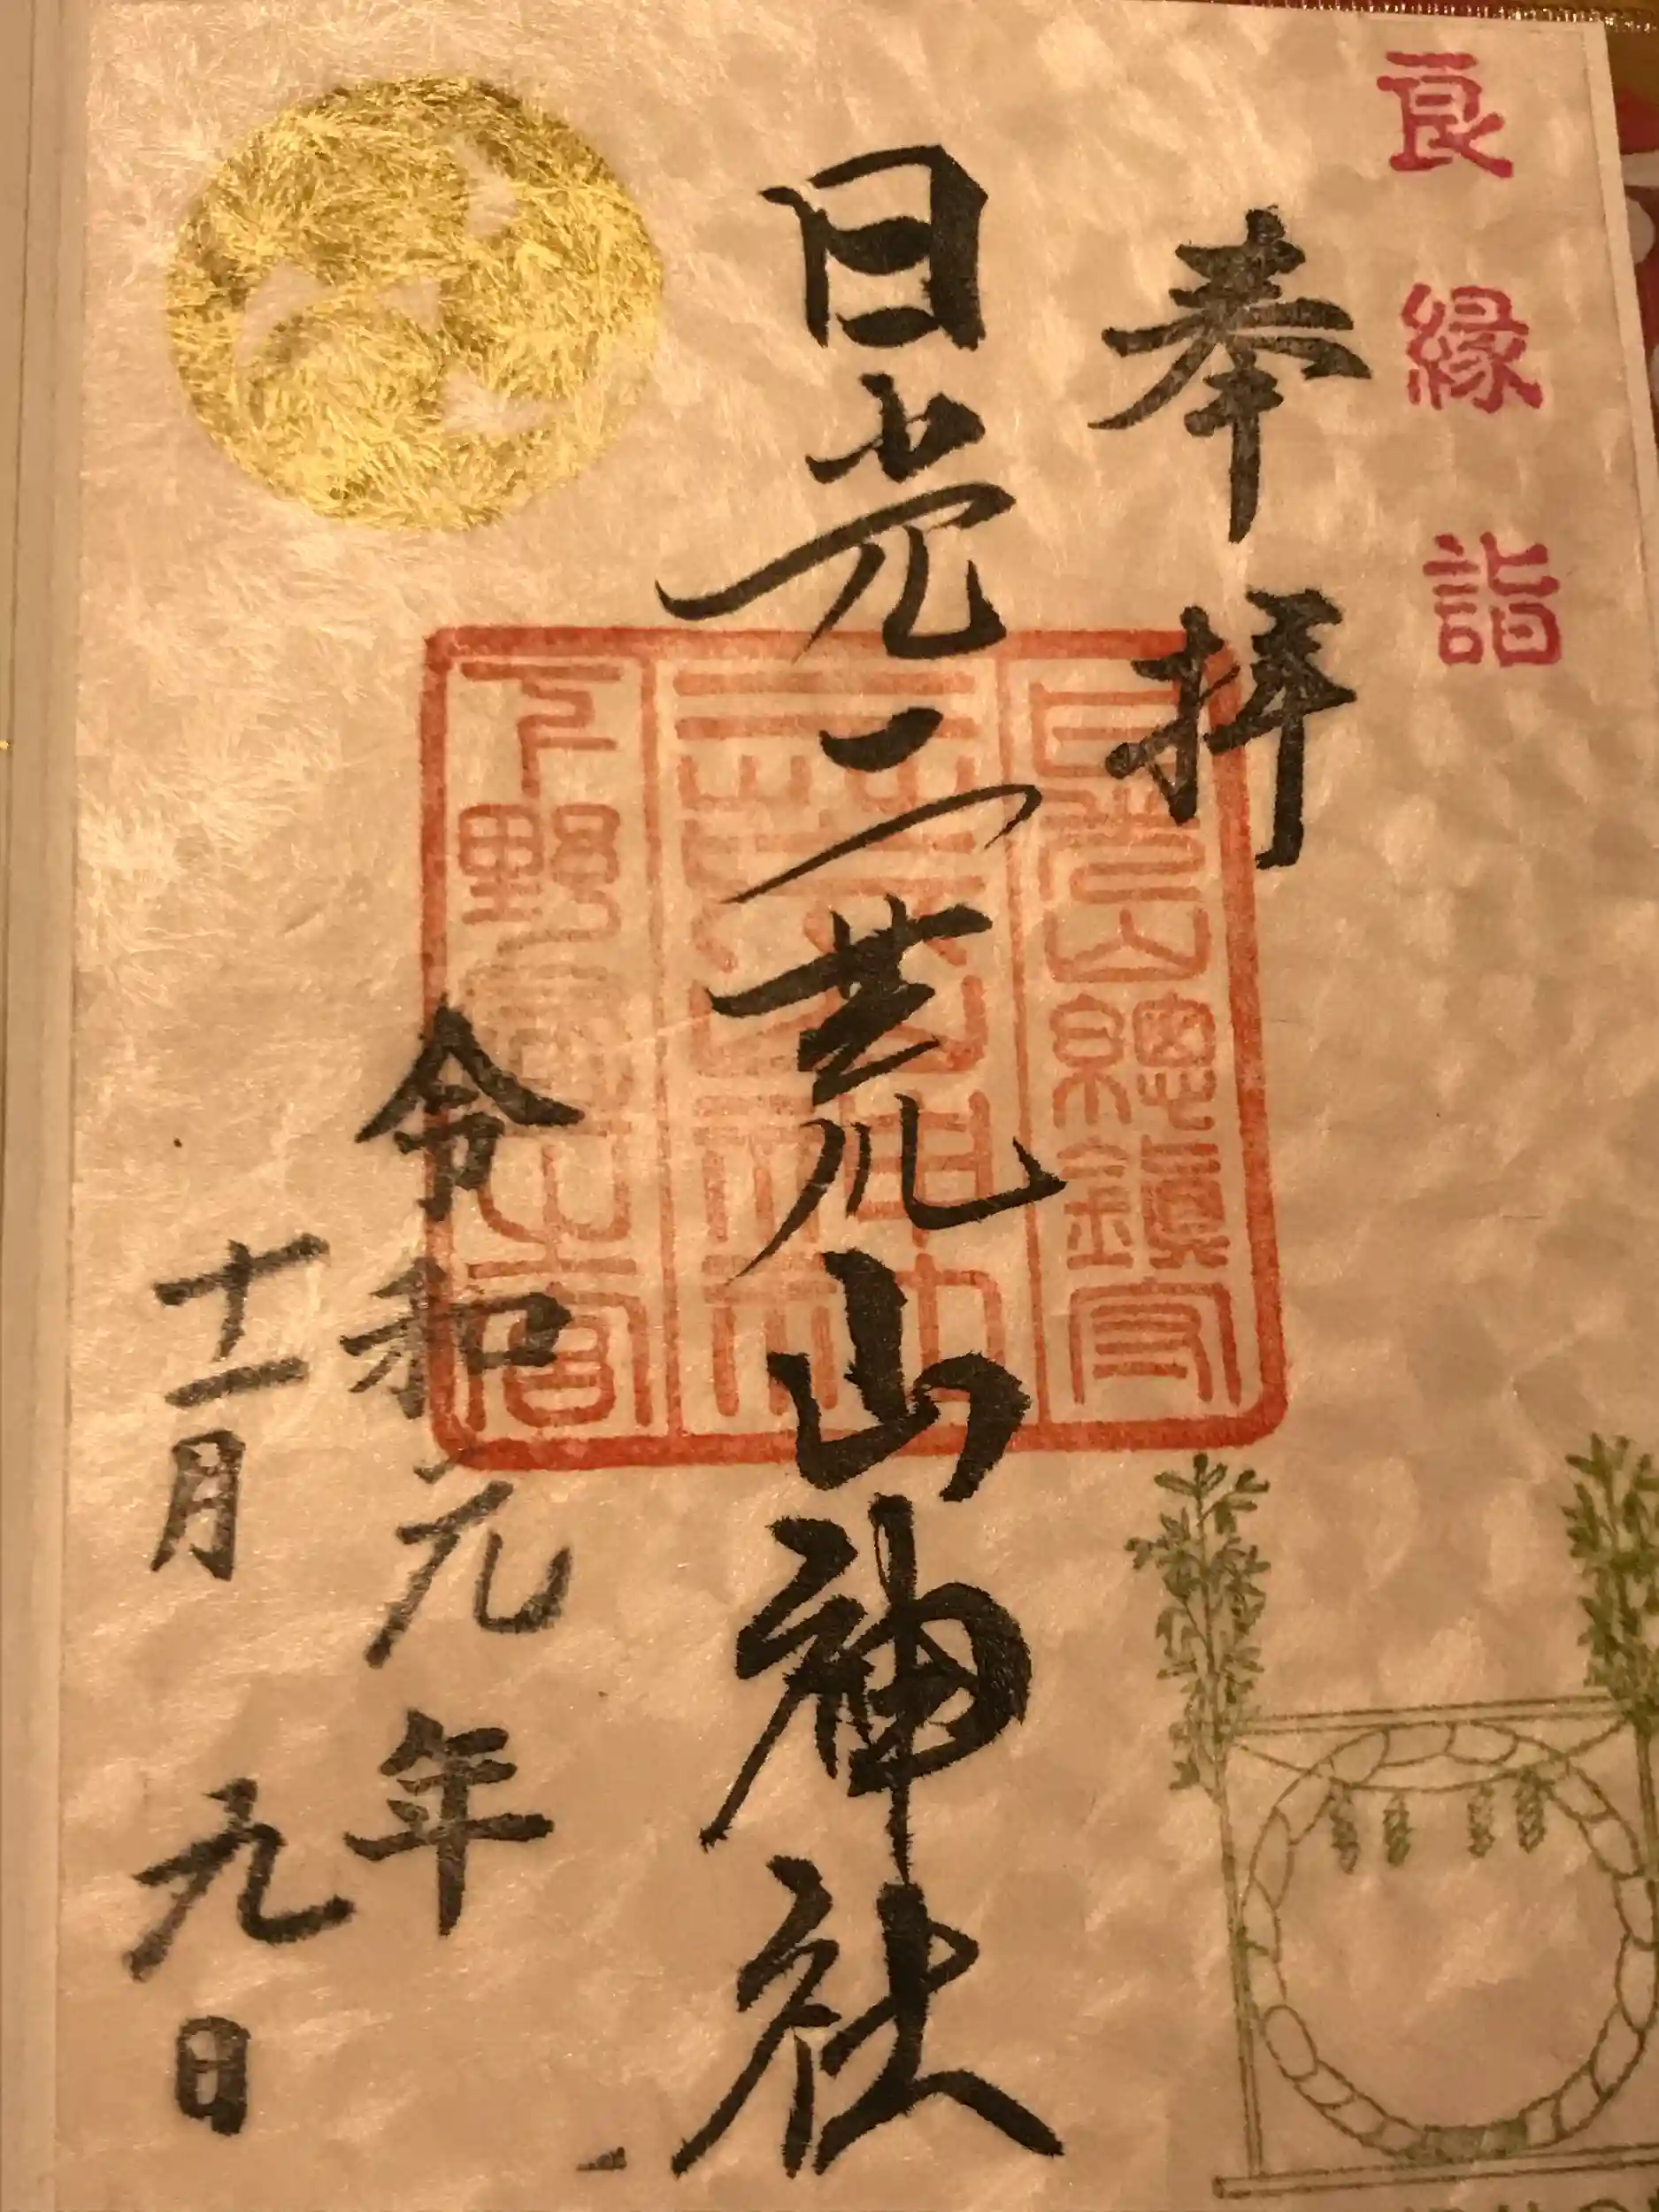 良縁詣
奉拝
日光二荒山神社
日光山總鎮守
二荒山神社
下野國一之宮
令和元年
十一月九日